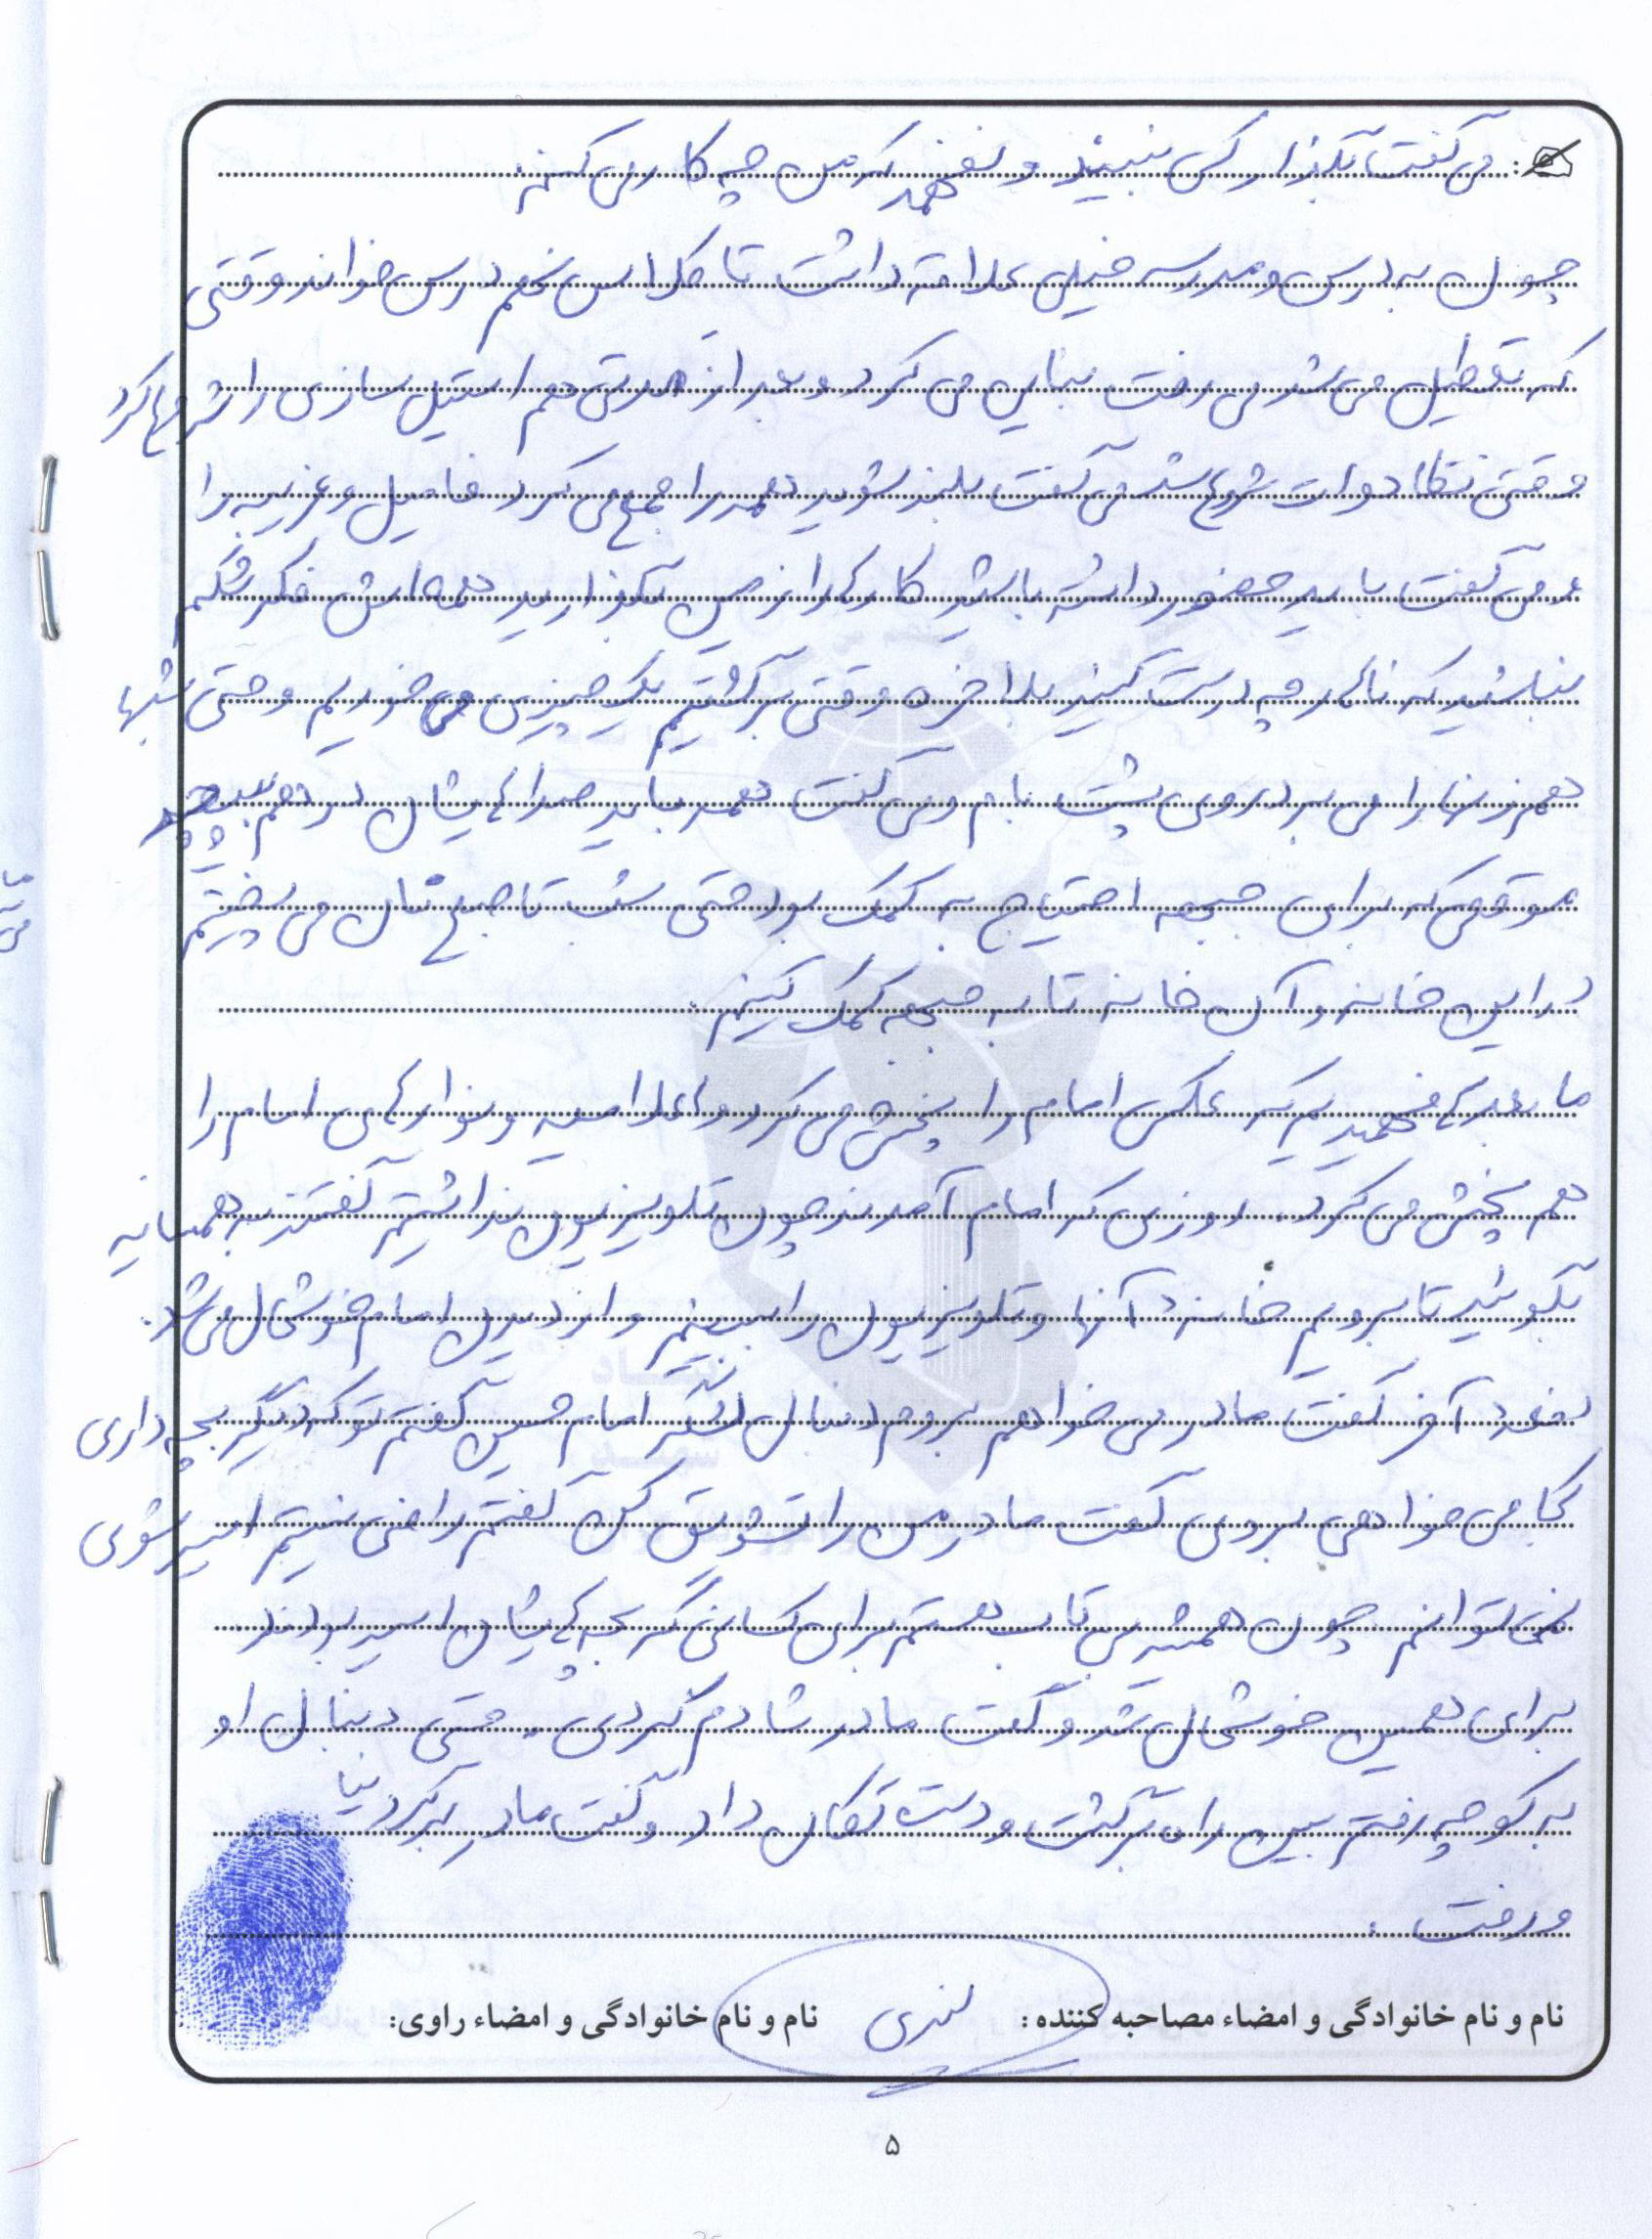 می گفت بگذار کسی نبیند و نفهمد که من چه کار می کنم.
چون به درس و مدرسه خیلی علاقه داشت تا کلاس نهم درس خواند وقتی
که تعطیل می شد می رفت بنایی می کرد و بعد از مدتی هم استیل سازی را شروع کرد
وقتی تظاهرات شروع شد می گفت بلند شوید همه را جمع می کرد فامیل و غریبه را
و می گفت باید حضور داشته باشید کارها را زمین بگذارید همه اش فکر شکم
نباشید که ناهار چه درست کنید بلاخره وقتی برگشتیم یک چیزی می خوریم و حتی شبها
هم زنها را می برد روی پشت بام و می گفت همه باید صداهایشان در هم بپیچد
موقعی که برای جبهه احتیاج به کمک بود حتی شب تا صبح نان می پختیم
در این خانه و آن خانه تا به جبهه کمک کنیم.
ما بعدها فهمیدیم که عکس امام را پخش می کرد و اعلامیه و نوارهای امام را
هم پخش می کرد. روزی که امام آمدند چون تلویزیون نداشتیم گفتند به همسایه
بگوئید تا برویم خانه آنها و تلویزیون را ببینیم و از دیدن امام خوشحال می شد.
دفعه آخر گفت مادر می خواهم بروم دنبال لشگر امام حسین گفتم تو که دیگر بچه داری
کجا می خواهی بروی گفت مادر من را تشویق کن گفتم راضی نیستم اسیر شوی
نمی توانم چون همیشه بی تاب هستم برای کسانی که بچه هایشان اسیر بودند
برای همین خوشحال شد و گفت مادر شادم کردی. حتی دنبال او
به کوچه رفتم بین راه برگشت و دست تکان داد و گفت مادر برگرد بیا
و رفت.
نام و نام خانوادگی و امضاء مصاحبه کننده: نام و نام خانوادگی و امضاء راوی:
۵